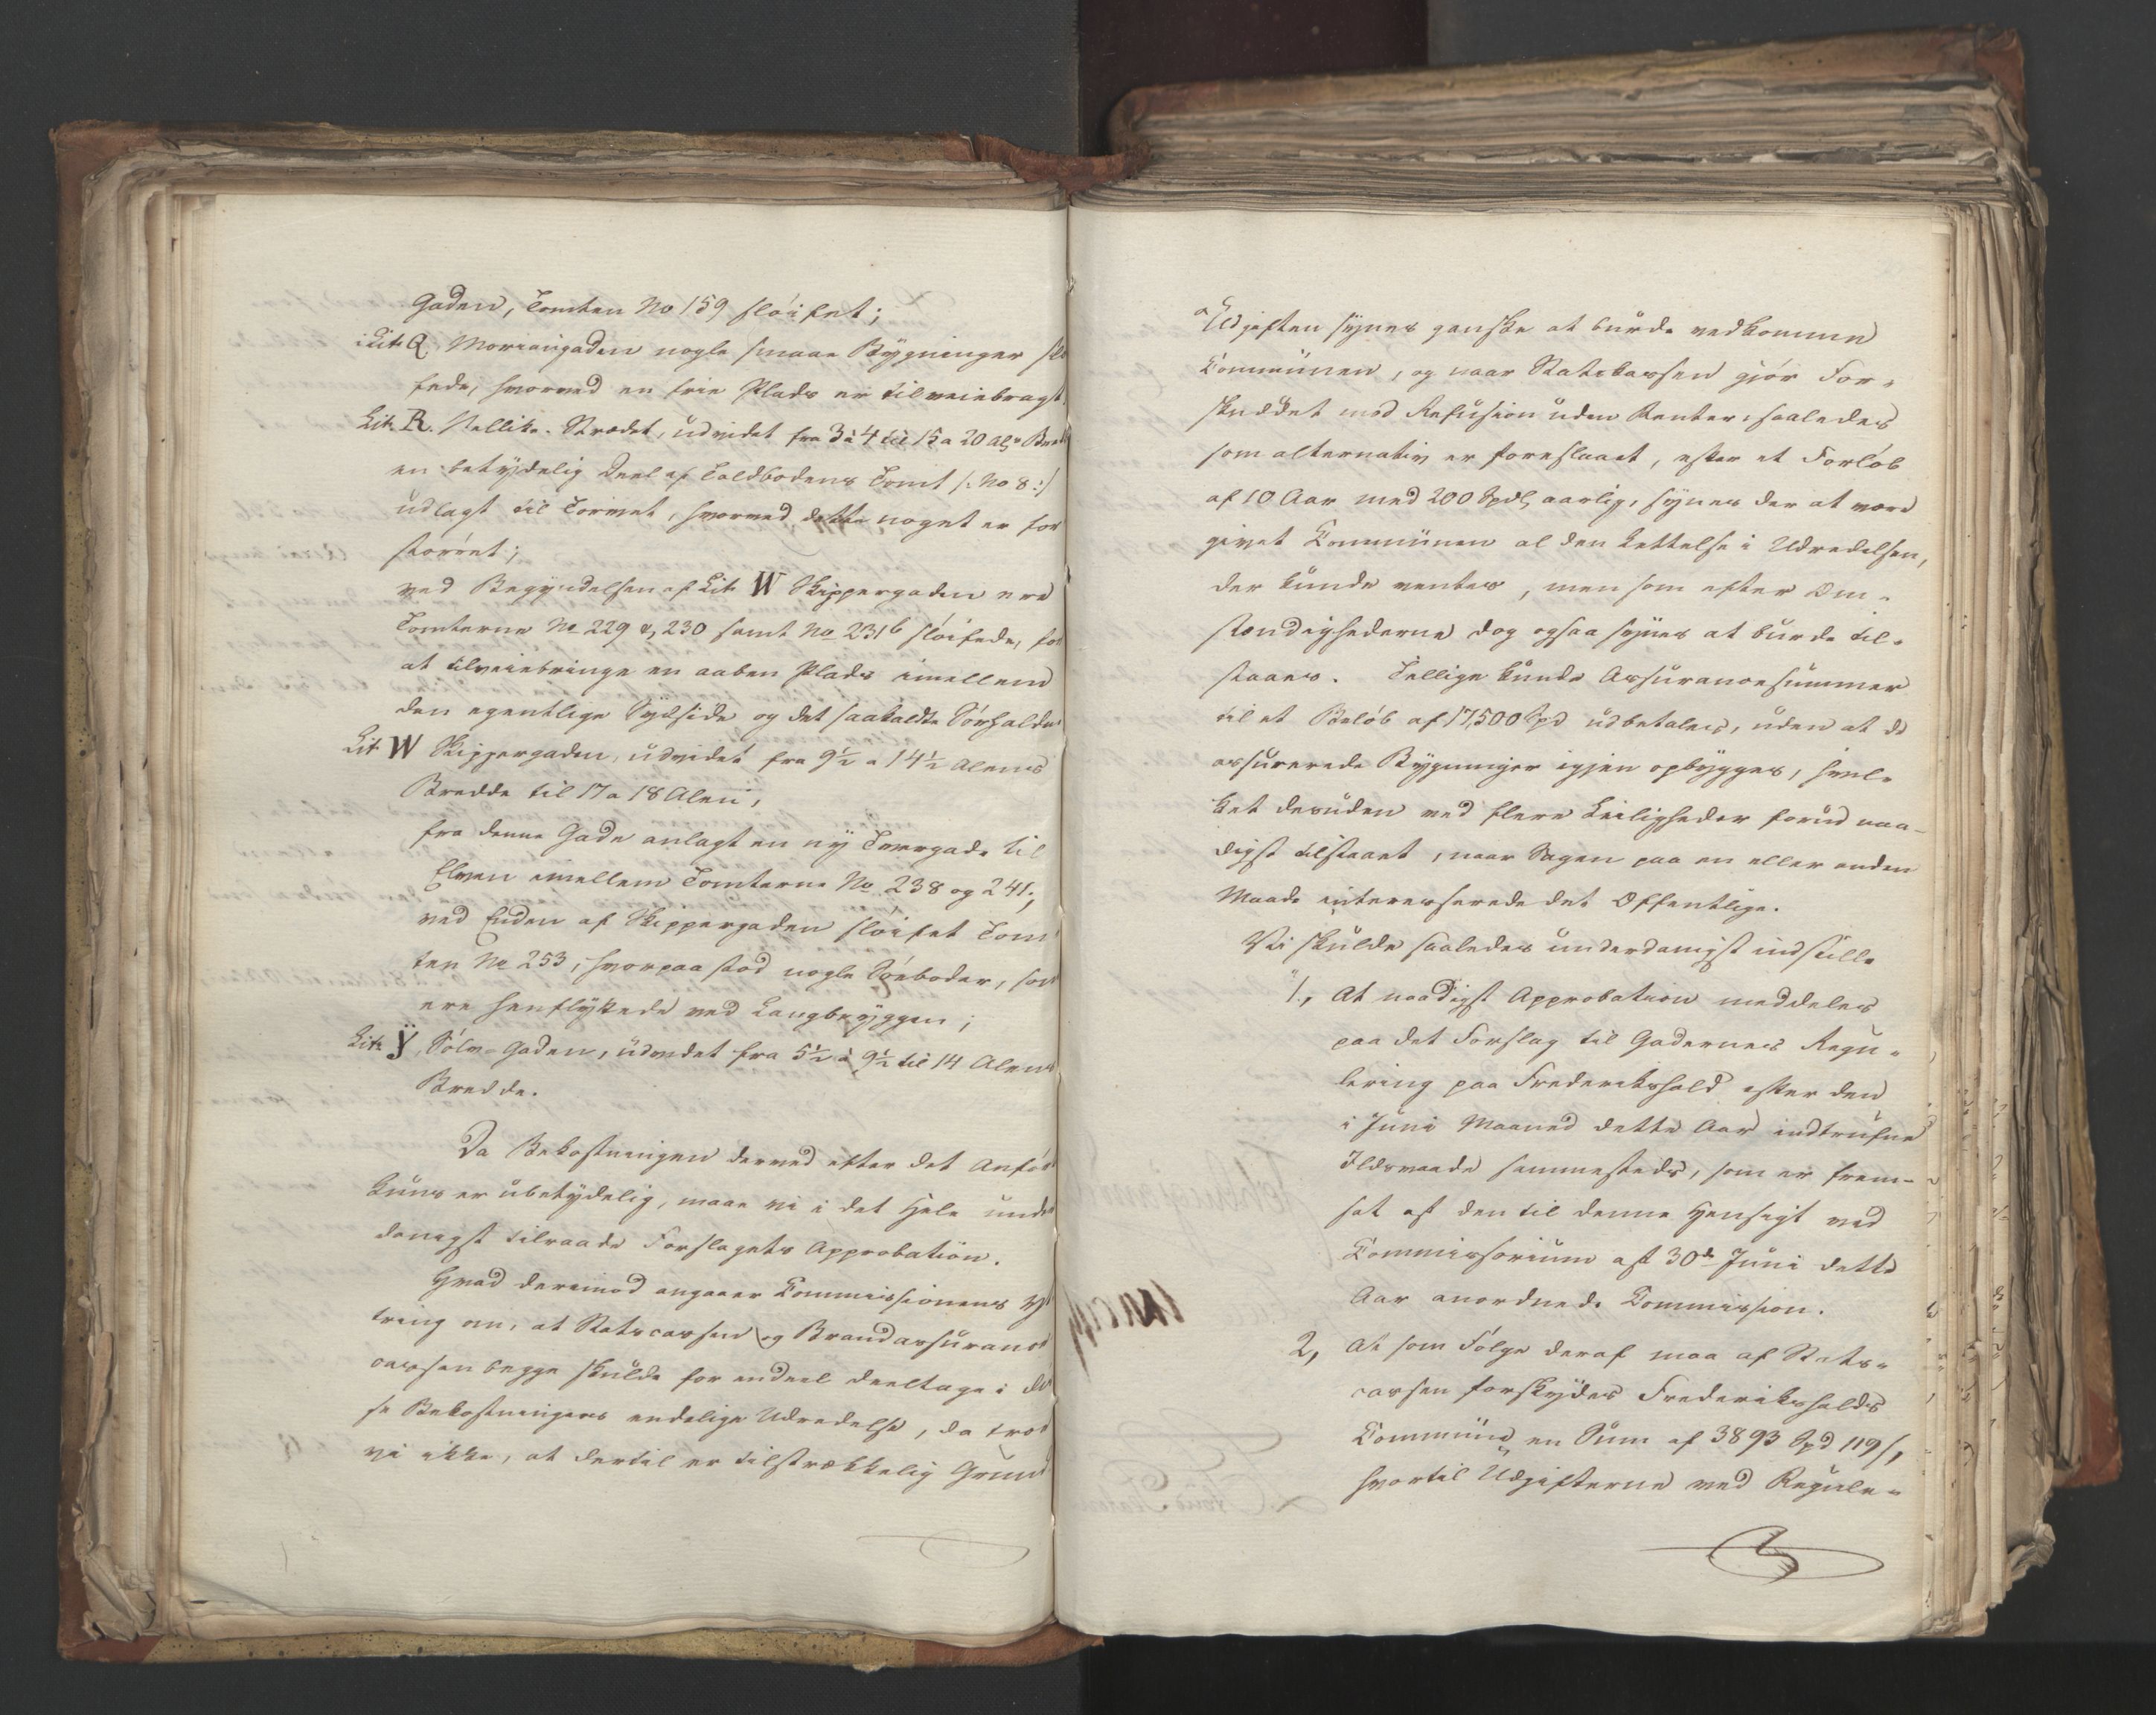 Gaden, Tomten No 159 sløifet;
i Lit. Q Moriangaden nogle smaae Bygninger slø
fede, hvorved en frie Plads er tilveiebragt.
Lit. R. Nellike-Strædet, udvidet fra 3 à 4 til 15 a 20 Al. Bred
en betydelig Deel af Toldbodens Tomt /: No 8 :/
udlagt til Torvet, hvorved dette noget er for
størret;
ved Begyndelsen af Lit. W Skippergaden ere
Tomterne No 229 & 230 samt No 231 b sløifede, for
at tilveiebringe en aaben Plads imellem
den egentlige Sydside og det saakaldte Sørhalden
Lit W Skippergaden, udvidet fra 9½ a 14½ Alens
Bredde til 17 a 18 Alen;
fra denne Gade anlagt en ny Tvergade til
Elven imellem Tomterne No 238 og 241;
ved Enden af Skippergaden sløifet Tom
ten No 253, hvorpaa stod nogle Søeboder, som
ere henflyttede ved Langbryggen;
Lit. Y, Sølv-Gaden, udvidet fra 5½ à 9½ til 14 Alens
Bredde.
Da Bekostningen derved efter det Anfør
kuns er ubetydelig, maae vi i det Hele under
danigst tilraade Forslagets Approbation.
Hvad derimod angaaer Commissionens Yt
tring om, at Statscassen og Brandassurance
cassen begge skulde for endeel deeltage i dis
se Bekostningers endelige Udredelse, da troe
vi ikke, at dertil er tilstrækkelig Grund
Udgiften synes ganske at burde vedkomme
Communen, og naar Statskassen gjør For-
skuddet mod Refusion uden Renter, saaledes
som alternativ er foreslaaet, efter et Forløb
af 10 Aar med 200 Spdl. aarlig, synes der at være
givet Communen al den Lettelse i Udredelsen,
der kunde ventes, men som efter Om-
stændighederne dog ogsaa synes at burde til-
staaes. Tillige kunde Assurancesummer
til et Beløb af 17,500 Spd udbetales, uden at de
assurerede Bygninger igjen opbygges, hvil-
ket desuden ved flere Leiligheder forud naa-
digst tilstaaet, naar Sagen paa en eller anden
Maade interesserede det Offentlige.
Vi skulde saaledes underdanigst indstille
1, At naadigst Approbation meddeles
paa det Forslag til Gadernes Regu-
lering paa Frederikshald efter den
i Juni Maaned dette Aar indtrufne
Ildsvaade sammesteds, som er frem-
sat af den til denne Hensigt ved
Commissorium af 30de Juni dette
Aar anordnede Commission.
2, At som Følge deraf maa af Stats-
cassen forskydes Frederikshalds
Commune en Sum af 3893 Spd 119 s,
hvortil Udgifterne ved Regule-